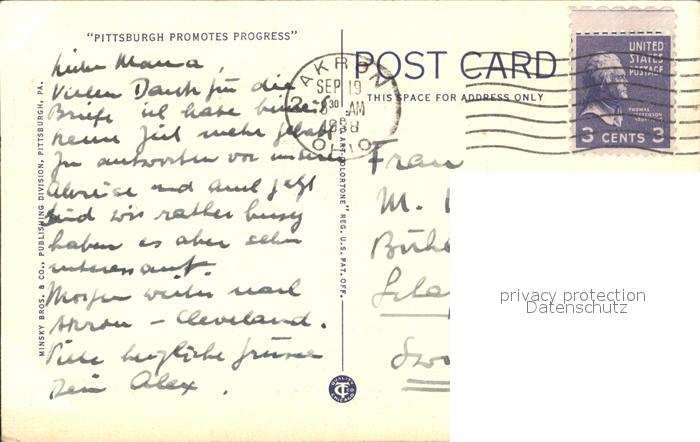 "PITTSBURGH PROMOTES PROGRESS"
POST CARD
THIS SPACE FOR ADDRESS ONLY
AKRON
SEP 19
8 30 AM
1938
OHIO
UNITED
STATES
POSTAGE
THOMAS
JEFFERSON
3 CENTS 3
MINSKY BROS. & CO., PUBLISHING DIVISION, PITTSBURGH, PA.
"COLORTONE" REG. U.S. PAT. OFF.
Liebe Mama,
Vielen Dank für die
Briefe ich habe
keine Zeit mehr gehabt
zu antworten vor unserer
Abreise und auch jetzt
sind wir rather busy
haben es aber sehr
interessant.
Morgen weiter nach
Akron – Cleveland.
Viele herzliche Grüsse
Dein Alex.
Frau
M.
privacy protection
Datenschutz